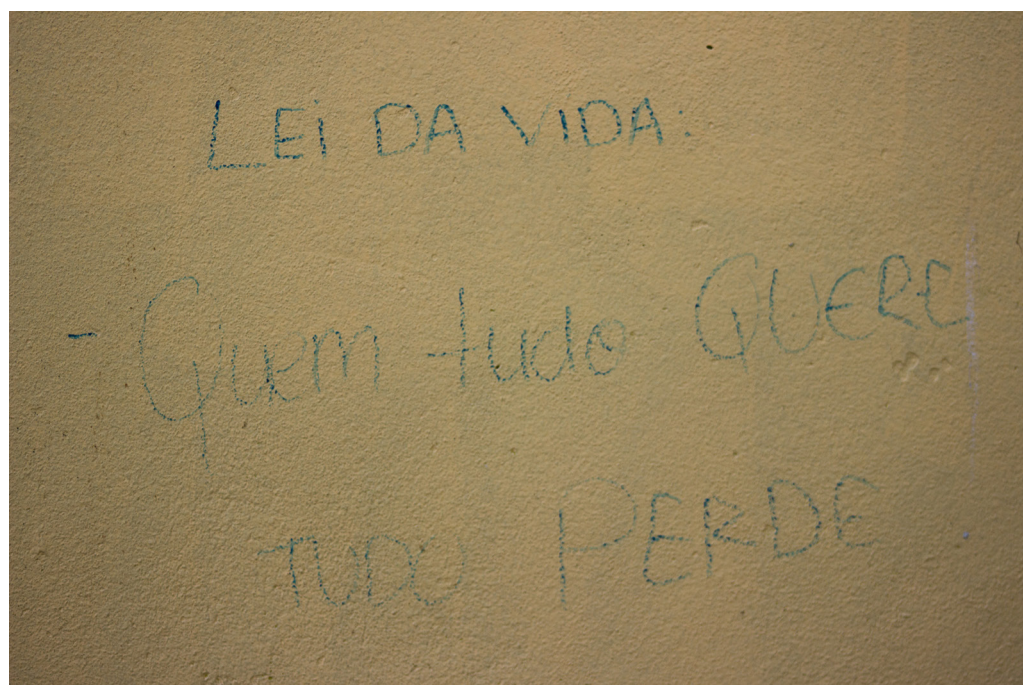 LEi DA VIDA:
- Quem tudo QUERE
TUDO PERDE